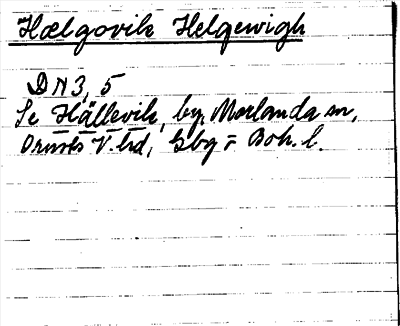 Hælgovik Helgewigh
DN 3, 5
Se Hällevik, by, Morlanda sn,
Orusts V. hd, Gbg = Boh. l.